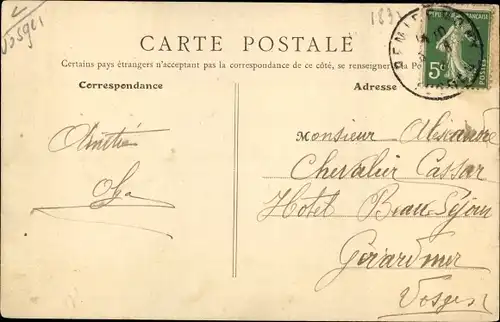 2
Vosges
183
CARTE POSTALE
Certains pays étrangers n'acceptant pas la correspondance de ce côté, se renseigner à la Po
Correspondance
Adresse
5c
POSTES
Amitiés
Olga
Monsieur Alexandre
Chevalier Cassar
Hotel Beau-Séjour
Gérardmer
Vosges